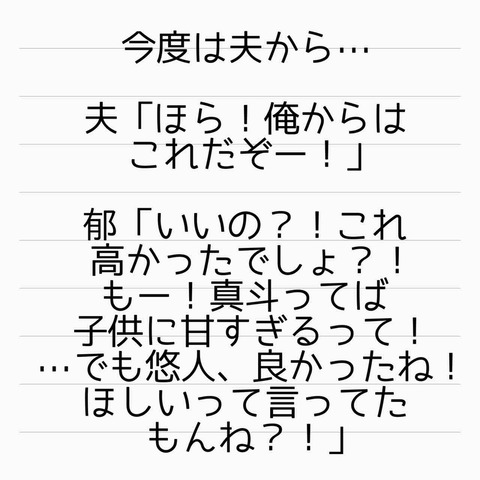 今度は夫から…
夫「ほら！俺からは
これだぞー！」
郁「いいの？！これ
高かったでしょ？！
もー！真斗ってば
子供に甘すぎるって！
…でも悠人、良かったね！
ほしいって言ってた
もんね？！」